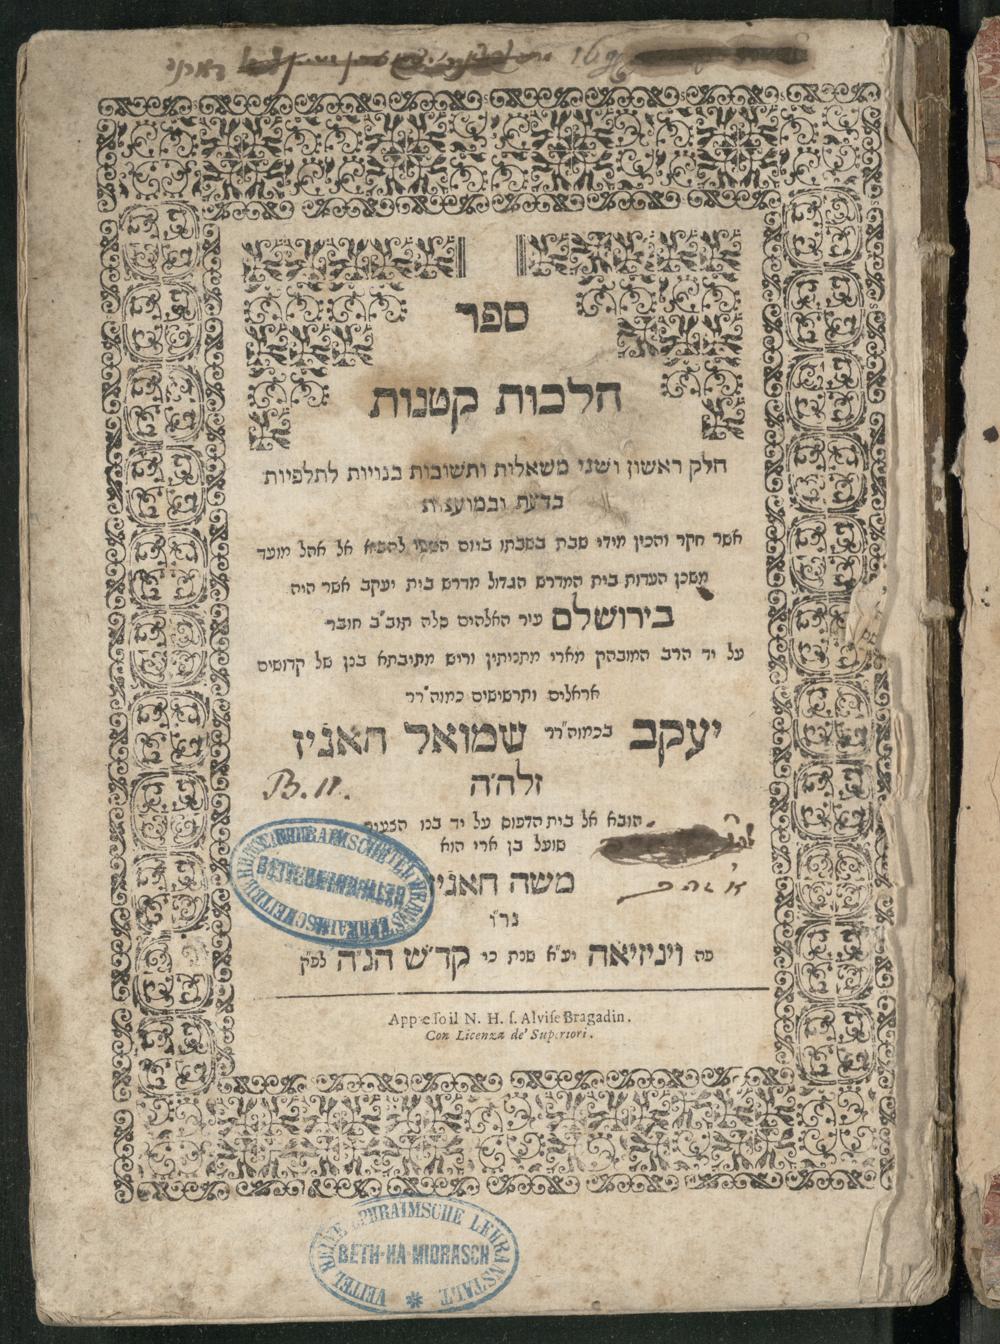 ספר
הלכות קטנות
חלק ראשון ושני משאלות ותשובות בנויות לתלפיות
בדעת ובמועצות
אשר חקר והכין מידי שבת בשבתו ביום הששי להביא אל אהל מועד
משכן העדות בית המדרש הגדול מדרש בית יעקב אשר היה
בירושלם עיר האלהים סלה תוב״ב חובר
על יד הרב המובהק מארי מתניתין וריש מתיבתא בנן של קדושים
אראלים ותרשישים כמוה״רר
יעקב בכמוה״רר שמואל חאגיז
זלה״ה
הובא אל בית הדפוס על יד בנו הצעיר
שועל בן ארי הוא
משה חאגיז
נר״ו
פה ויניזיאה יע״א שנת כי קד״ש הנ״ה לפ״ק
Appresso il N. H. s. Alvise Bragadin.
Con Licenza de' Superiori.
B. H.
VEITEL HEINE EPHRAIMSCHE LEHRANSTALT
BETH-HA-MIDRASCH
VEITEL HEINE EPHRAIMSCHE LEHRANSTALT
BETH-HA-MIDRASCH